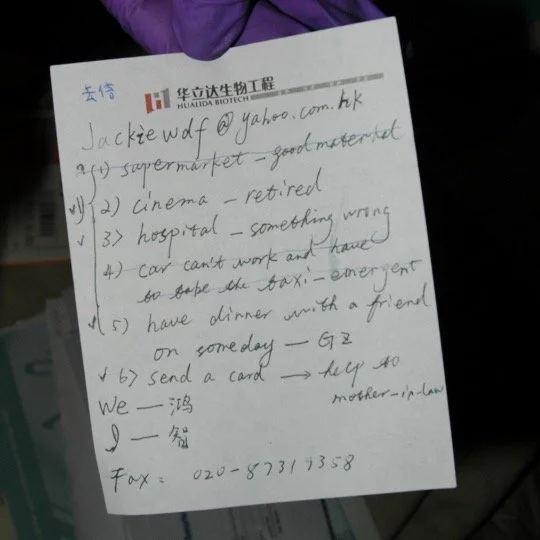 去信
华立达生物工程
HUALIDA BIOTECH
Jackiewdf@yahoo.com.hk
1) supermarket - good material
2) cinema - retired
3> hospital - something wrong
4) car can't work and have
to take the taxi - emergent
5) have dinner with a friend
on someday — GZ
6> send a card → help to
mother-in-law
We — 鸿
I — 智
Fax: 020-87319358